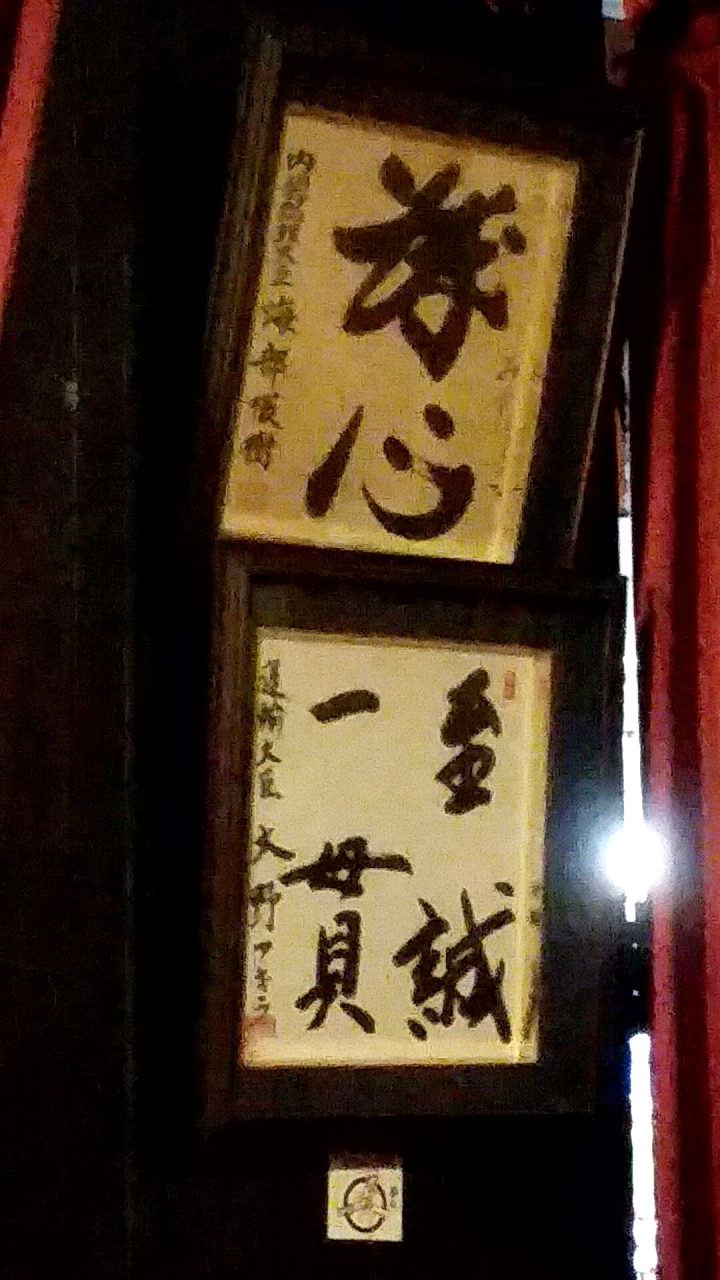 心
内閣総理大臣 海部俊樹
至誠
一貫
運輸大臣 大野アキラ